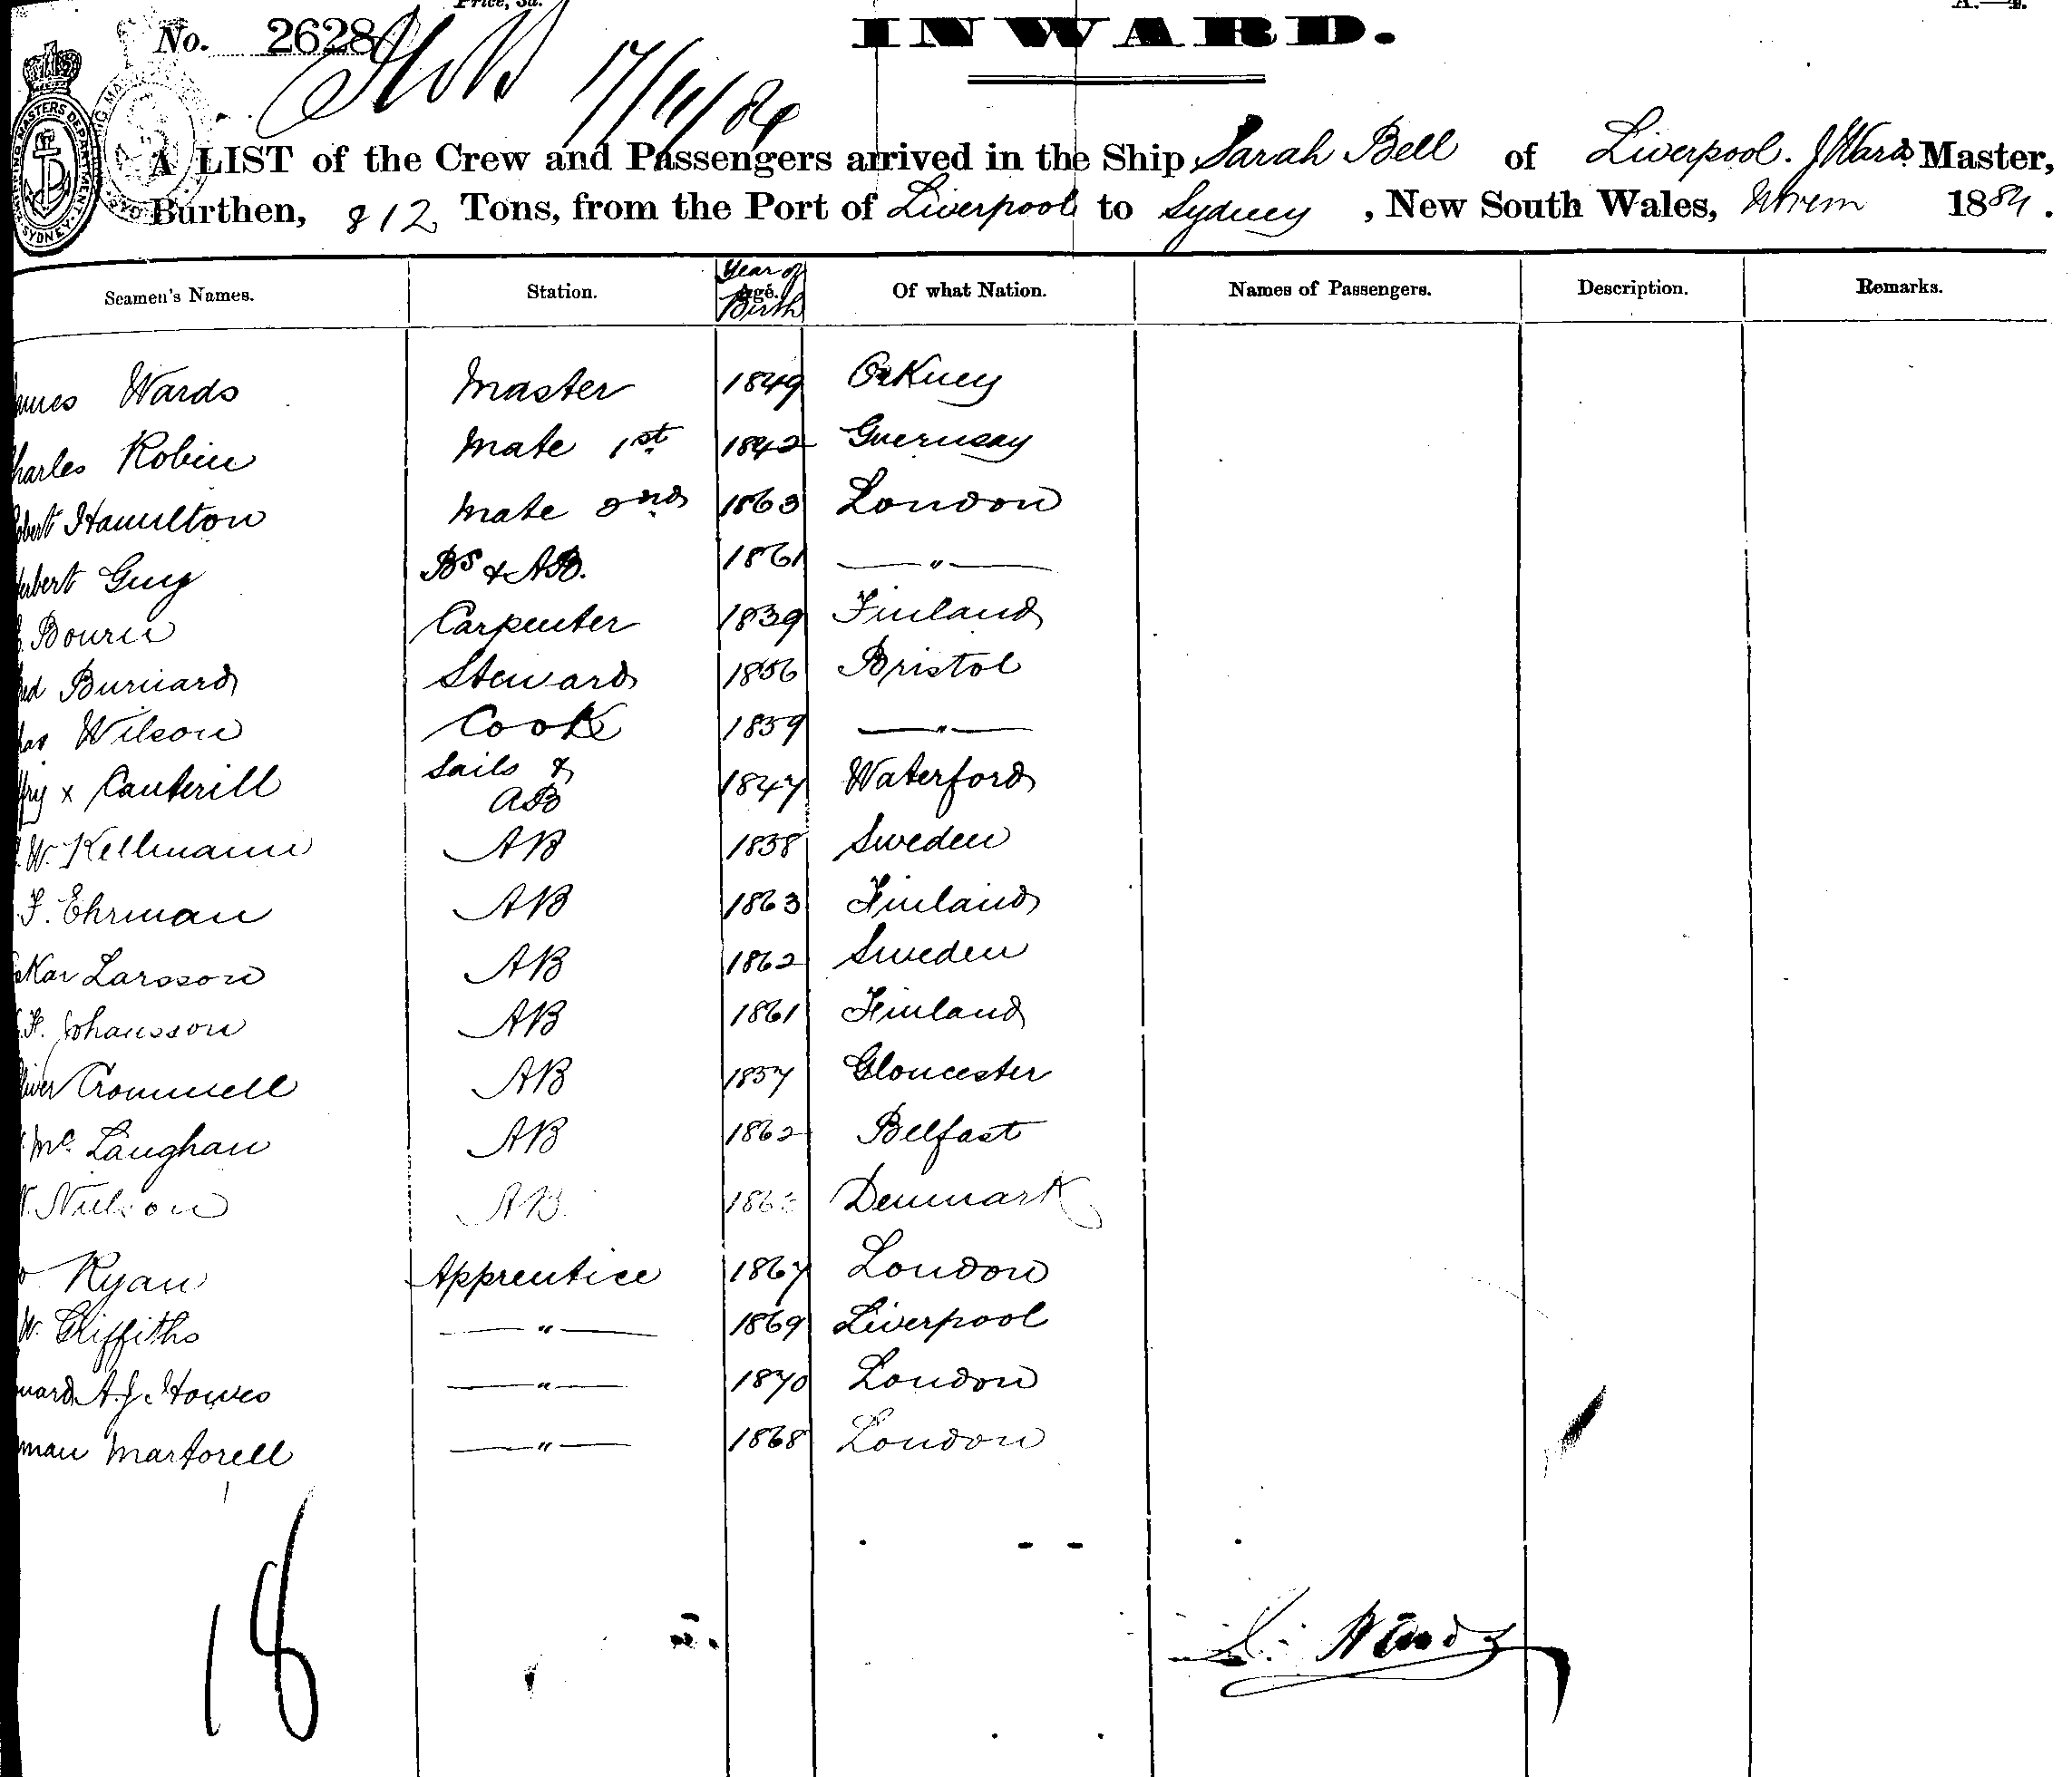 Price, 3d.
A.—4.
No. 2628
INWARD.
17/11/84
SHIPPING MASTERS DEPARTMENT
SYDNEY
A LIST of the Crew and Passengers arrived in the Ship Sarah Bell of Liverpool. J Wards Master,
Burthen, 812 Tons, from the Port of Liverpool to Sydney, New South Wales, 1884.
Seamen's Names. Station. Year of Birth Age. Of what Nation. Names of Passengers. Description. Remarks.
ames Wards Master 1849 Orkney
harles Robin Mate 1st 1842 Guernsay
obert Hamilton Mate 2nd 1863 London
erbert Guy Bs & AB. 1861 — " —
Bourn Carpenter 1839 Finland
red Burnard Steward 1856 Bristol
has Wilson Cook 1859 — " —
ffry x Canterill Sails & AB 1847 Waterford
W. Kellmann AB 1838 Sweden
F. Ehrman AB 1863 Finland
skar Larsson AB 1862 Sweden
F. Johansson AB 1861 Finland
liver Cromwell AB 1857 Gloucester
Mc Laughan AB 1862 Belfast
N. Nielson AB. Denmark
Ryan Apprentice 1867 London
W. Griffiths — " — 1869 Liverpool
ward A. J. Howes — " — 1870 London
man Martorell — " — 1868 London
18
J. Wards